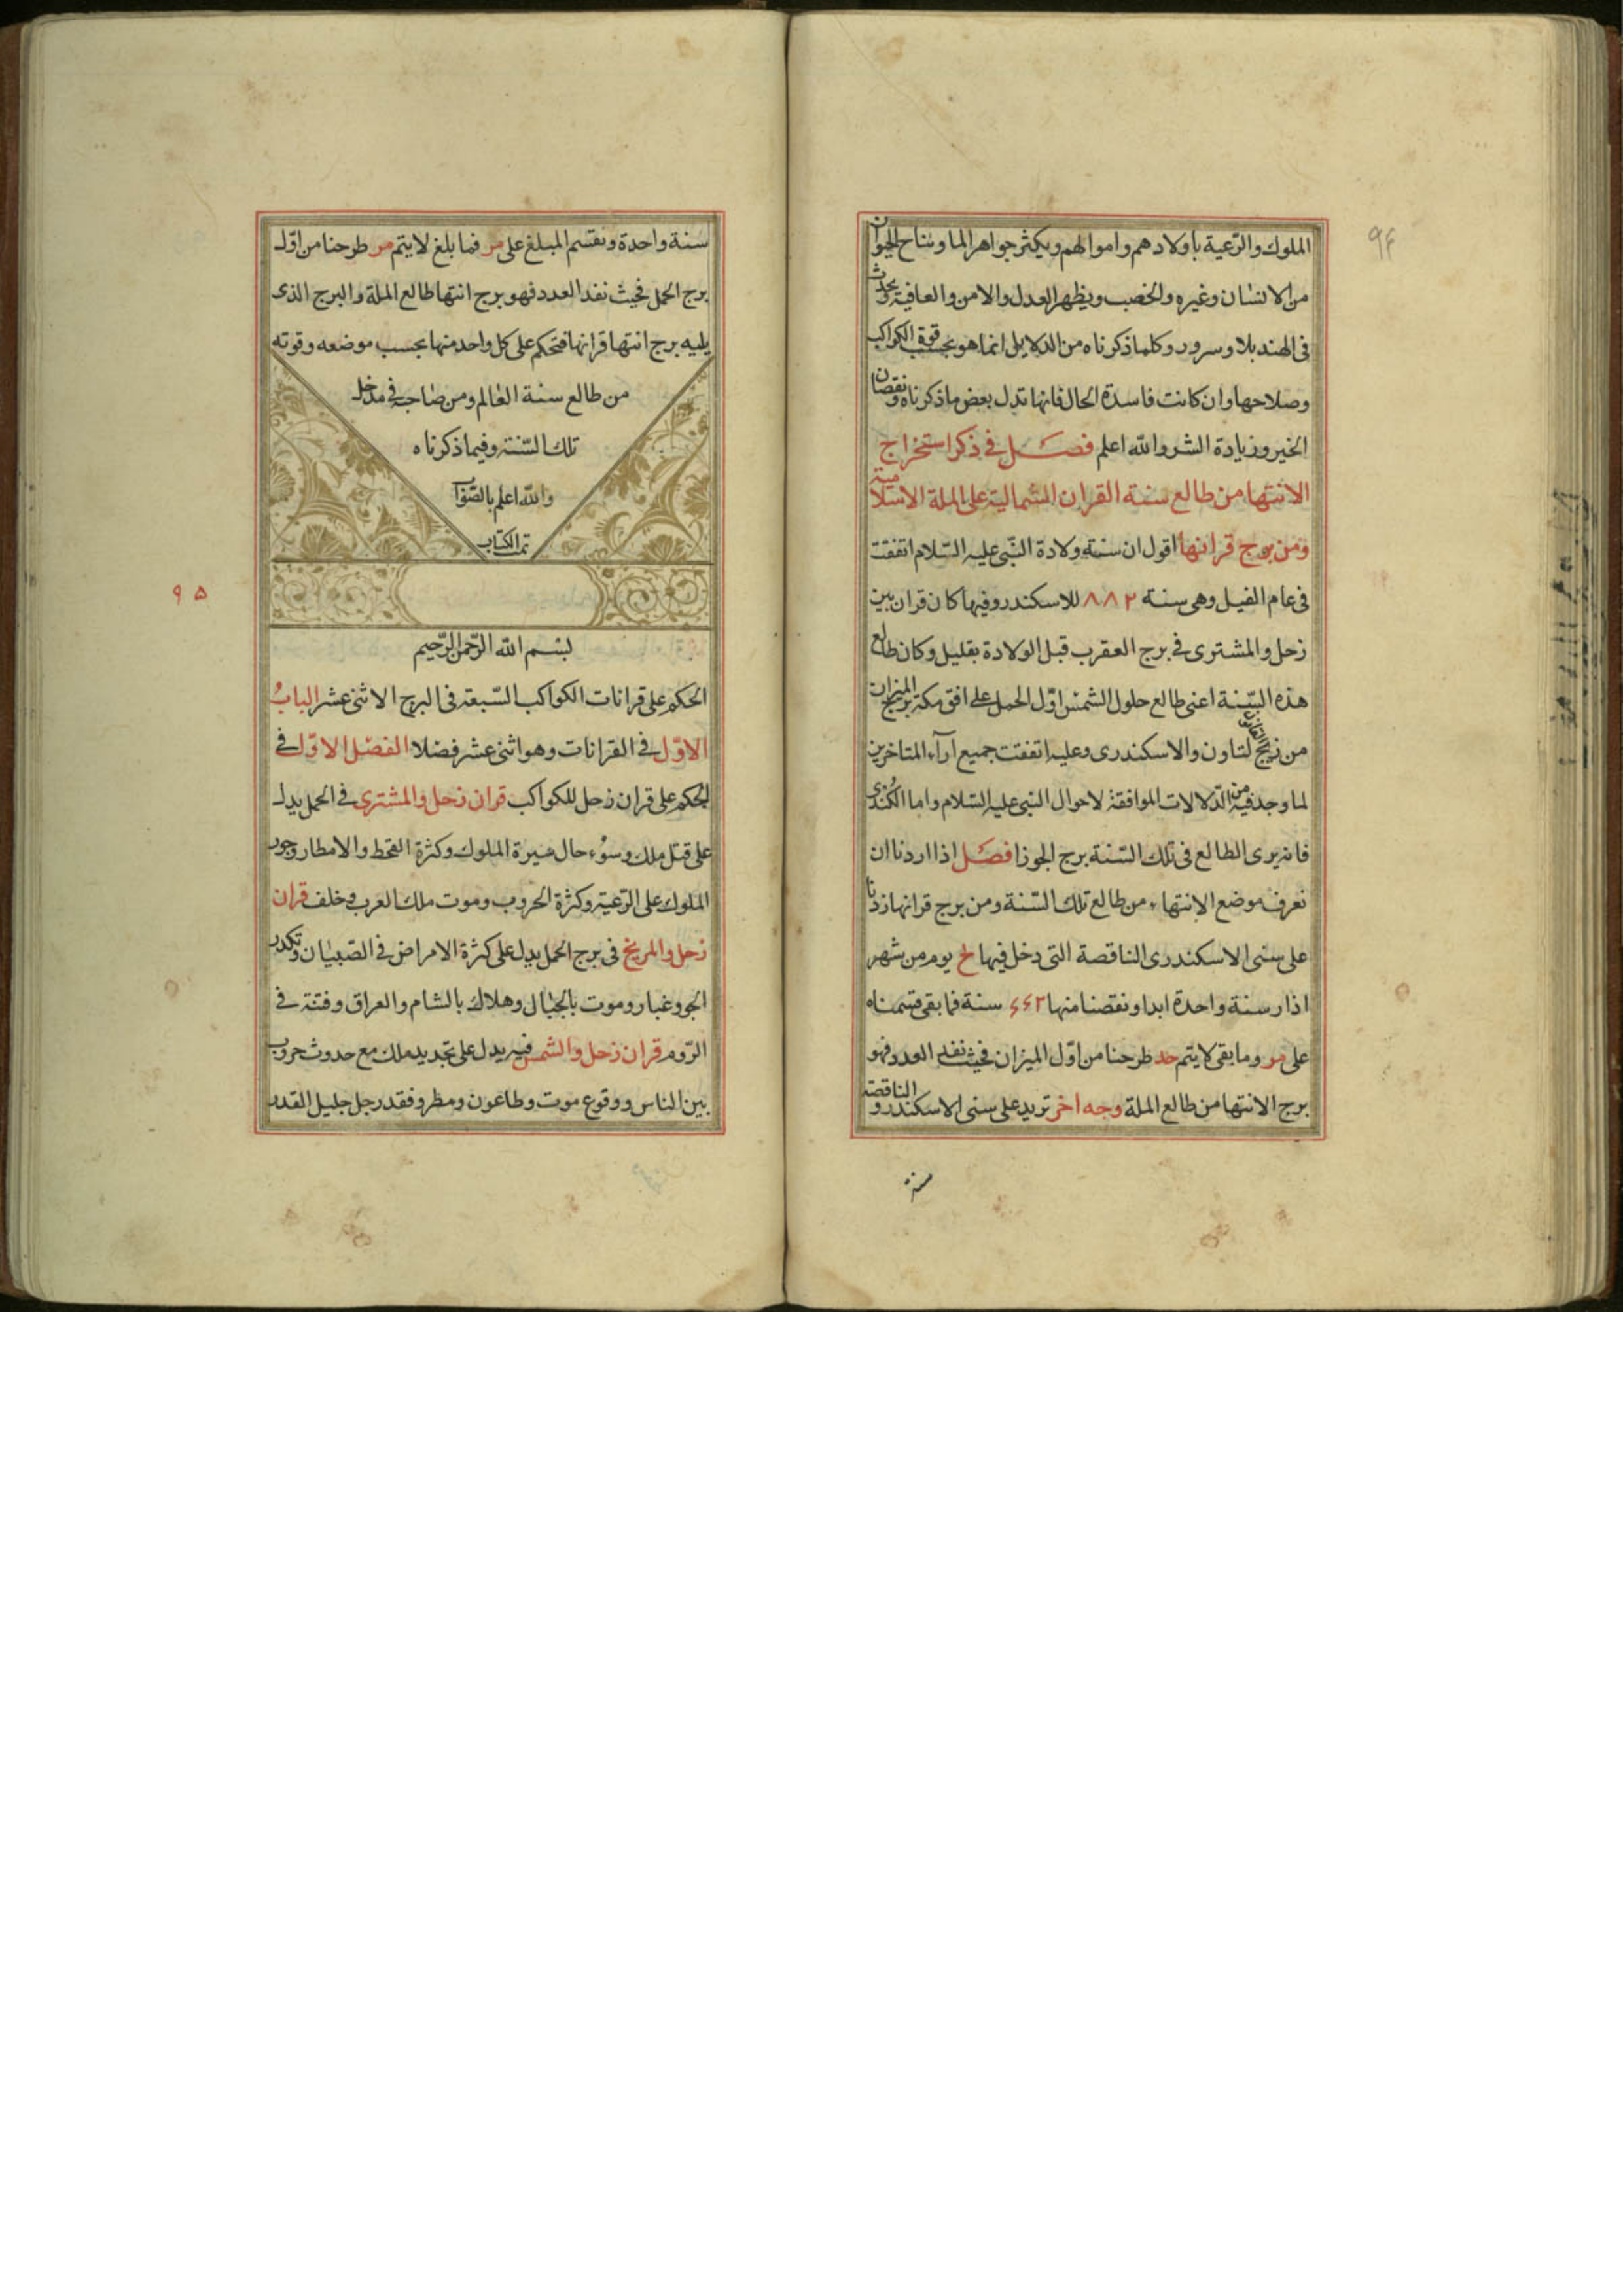 ۹۴
الملوك والرّعية بأولادهم واموالهم ويكثر جواهر الما ونتاج الحيوان
من الانسان وغيره والخصب ويظهر العدل والامن والعافية ويحدث
فى الهند بلا وسرور وكلما ذكرناه من الدلايل انما هو بحسب قوة الكواكب
وصلاحها وان كانت فاسدة الحال فانها تدل بعض ما ذكرناه ونقصان
الخير وزيادة الشر والله اعلم فصل فى ذكر استخراج
الانتها من طالع سنة القران الشمالية على الملة الاسلامية
ومن برج قرانها اقول ان سنة ولادة النّبى عليه السّلام اتفقت
فى عام الفيل وهى سنة ٨٨٢ للاسكندر وفيها كان قران بين
زحل والمشترى فى برج العقرب قبل الولادة بقليل وكان طالع
هذه السّنة اعنى طالع حلول الشمس اوّل الحمل على افق مكة برج الميزان
من زيج لتاون والاسكندرى وعليه اتفقت جميع آرآء المتاخرين
لما وجد فيه من الدّلالات الموافقة لاحوال النبى عليه السّلام واما الكُندى
فانه يرى الطالع فى تلك السّنة برج الجوزا فصل اذا اردنا ان
نعرف موضع الانتهاء من طالع تلك السّنة ومن برج قرانها زدنا
على سنى الاسكندرى الناقصة التى دخل فيها لح يوم من شهر
اذار سنة واحدة ابدا ونقصنا منها ٤٤٢ سنة فما بقى قسمناه
على مر وما بقى لا يتم حد طرحنا من اوّل الميزان فحيث نفد العدد فهو
برج الانتها من طالع الملة وجه اخر تريد على سنى الاسكندر والناقصة
سنة
سنة واحدة ونقسم المبلغ على مر فما بلغ لا يتم مر طرحنا من اوّل
برج الحمل فحيث نفد العدد فهو برج انتها طالع الملة والبرج الذى
يليه برج انتها قرانها فتحكم على كل واحد منها بحسب موضعه وقوته
من طالع سنة العالم ومن صاحبه فى مدخل
تلك السّنة وفيما ذكرناه
والله اعلم بالصّواب
تمت الكتاب
۹۵
بسم الله الرّحمن الرّحيم
الحكم على قرانات الكواكب السّبعة فى البرج الاثنى عشر البابُ
الاوّل فى القرانات وهو اثنى عشر فصلا الفصل الاوّل فى
الحكم على قران زحل للكواكب قران زحل والمشترى فى الحمل يدل
على قتل ملك وسوء حال ميرة الملوك وكثرة القحط والامطار وجور
الملوك على الرّعية وكثرة الحروب وموت ملك العرب وخلف قران
زحل والمريخ فى برج الحمل يدل على كثرة الامراض فى الصّبيان وتكدر
الجو وغبار وموت بالجبال وهلاك بالشام والعراق وفتنة فى
الرّوم قران زحل والشمس فيه يدل على تجديد ملك مع حدوث حروب
بين الناس ووقوع موت وطاعون ومطر وفقد رجل جليل القدر